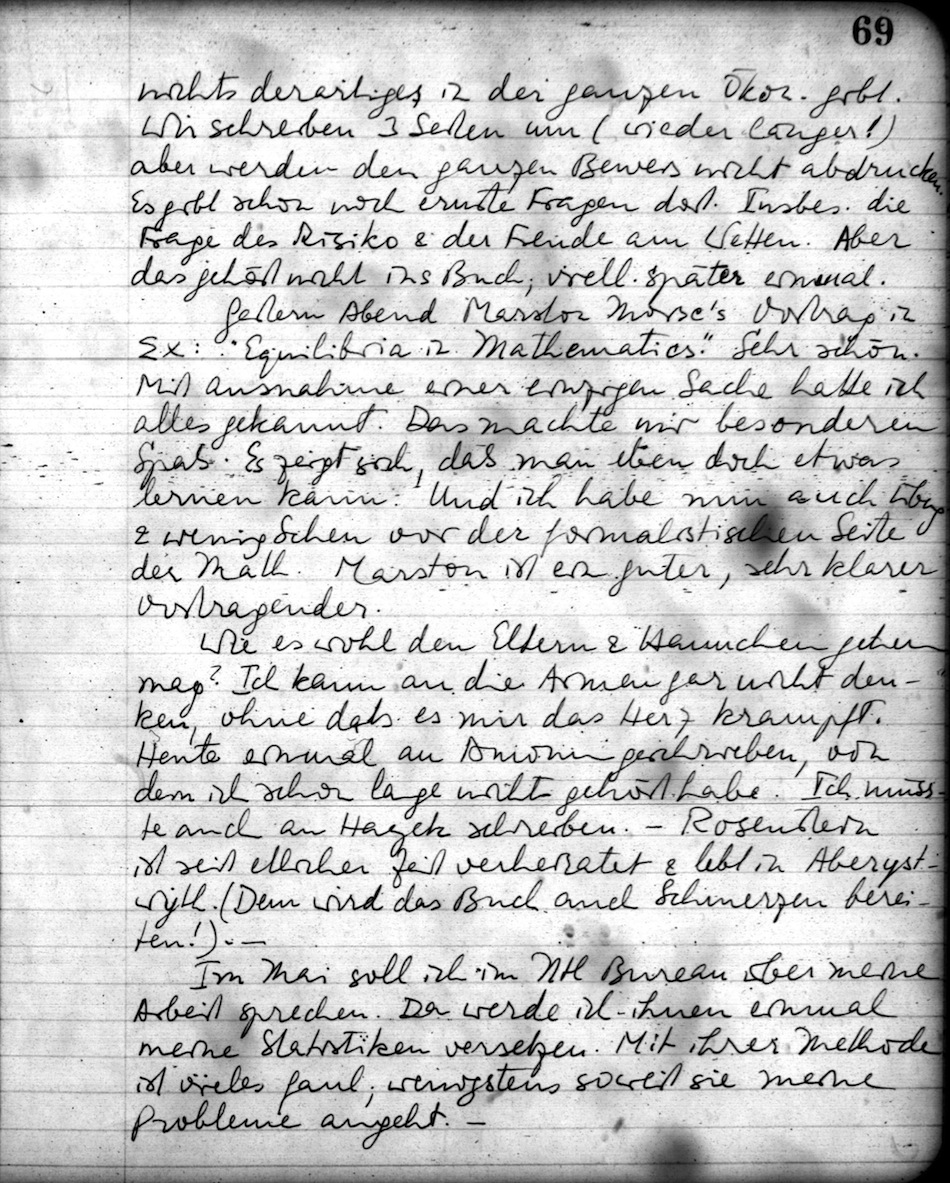 69
nichts derartiges in der ganzen Ökon. gibt.
Wir schreiben 3 Seiten um (wieder länger!)
aber werden den ganzen Beweis nicht abdrucken.
Es gibt schon noch ernste Fragen dort. Insbes. die
Frage des Risiko & der Freude am Wetten. Aber
das gehört nicht ins Buch, viell. später einmal.
Gestern Abend Marston Morse's Vortrag in
Ex: "Equilibria in Mathematics." Sehr schön.
Mit ausnahme einer einzigen Sache hatte ich
alles gekannt. Das machte mir besonderen
Spaß. Es zeigt sich, daß man eben doch etwas
lernen kann. Und ich habe nun auch
& wenig Scheu vor der formalistischen Seite
der Math. Marston ist ein guter, sehr klarer
Vortragender.
Wie es wohl den Eltern & Hannchen gehen
mag? Ich kann an die Armen gar nicht den-
ken, ohne daß es mir das Herz krampft.
Heute einmal an Amonn geschrieben, von
dem ich schon lange nichts gehört habe. Ich müss-
te auch an Hayek schreiben. – Rosenstein
ist seit etlicher Zeit verheiratet & lebt in Aberyst-
wyth. (Dem wird das Buch auch Schmerzen berei-
ten!). –
Im Mai soll ich im Ntl Bureau über meine
Arbeit sprechen. Da werde ich ihnen einmal
meine Statistiken versetzen. Mit ihrer Methode
ist vieles faul, wenigstens soweit sie meine
Probleme angeht. –